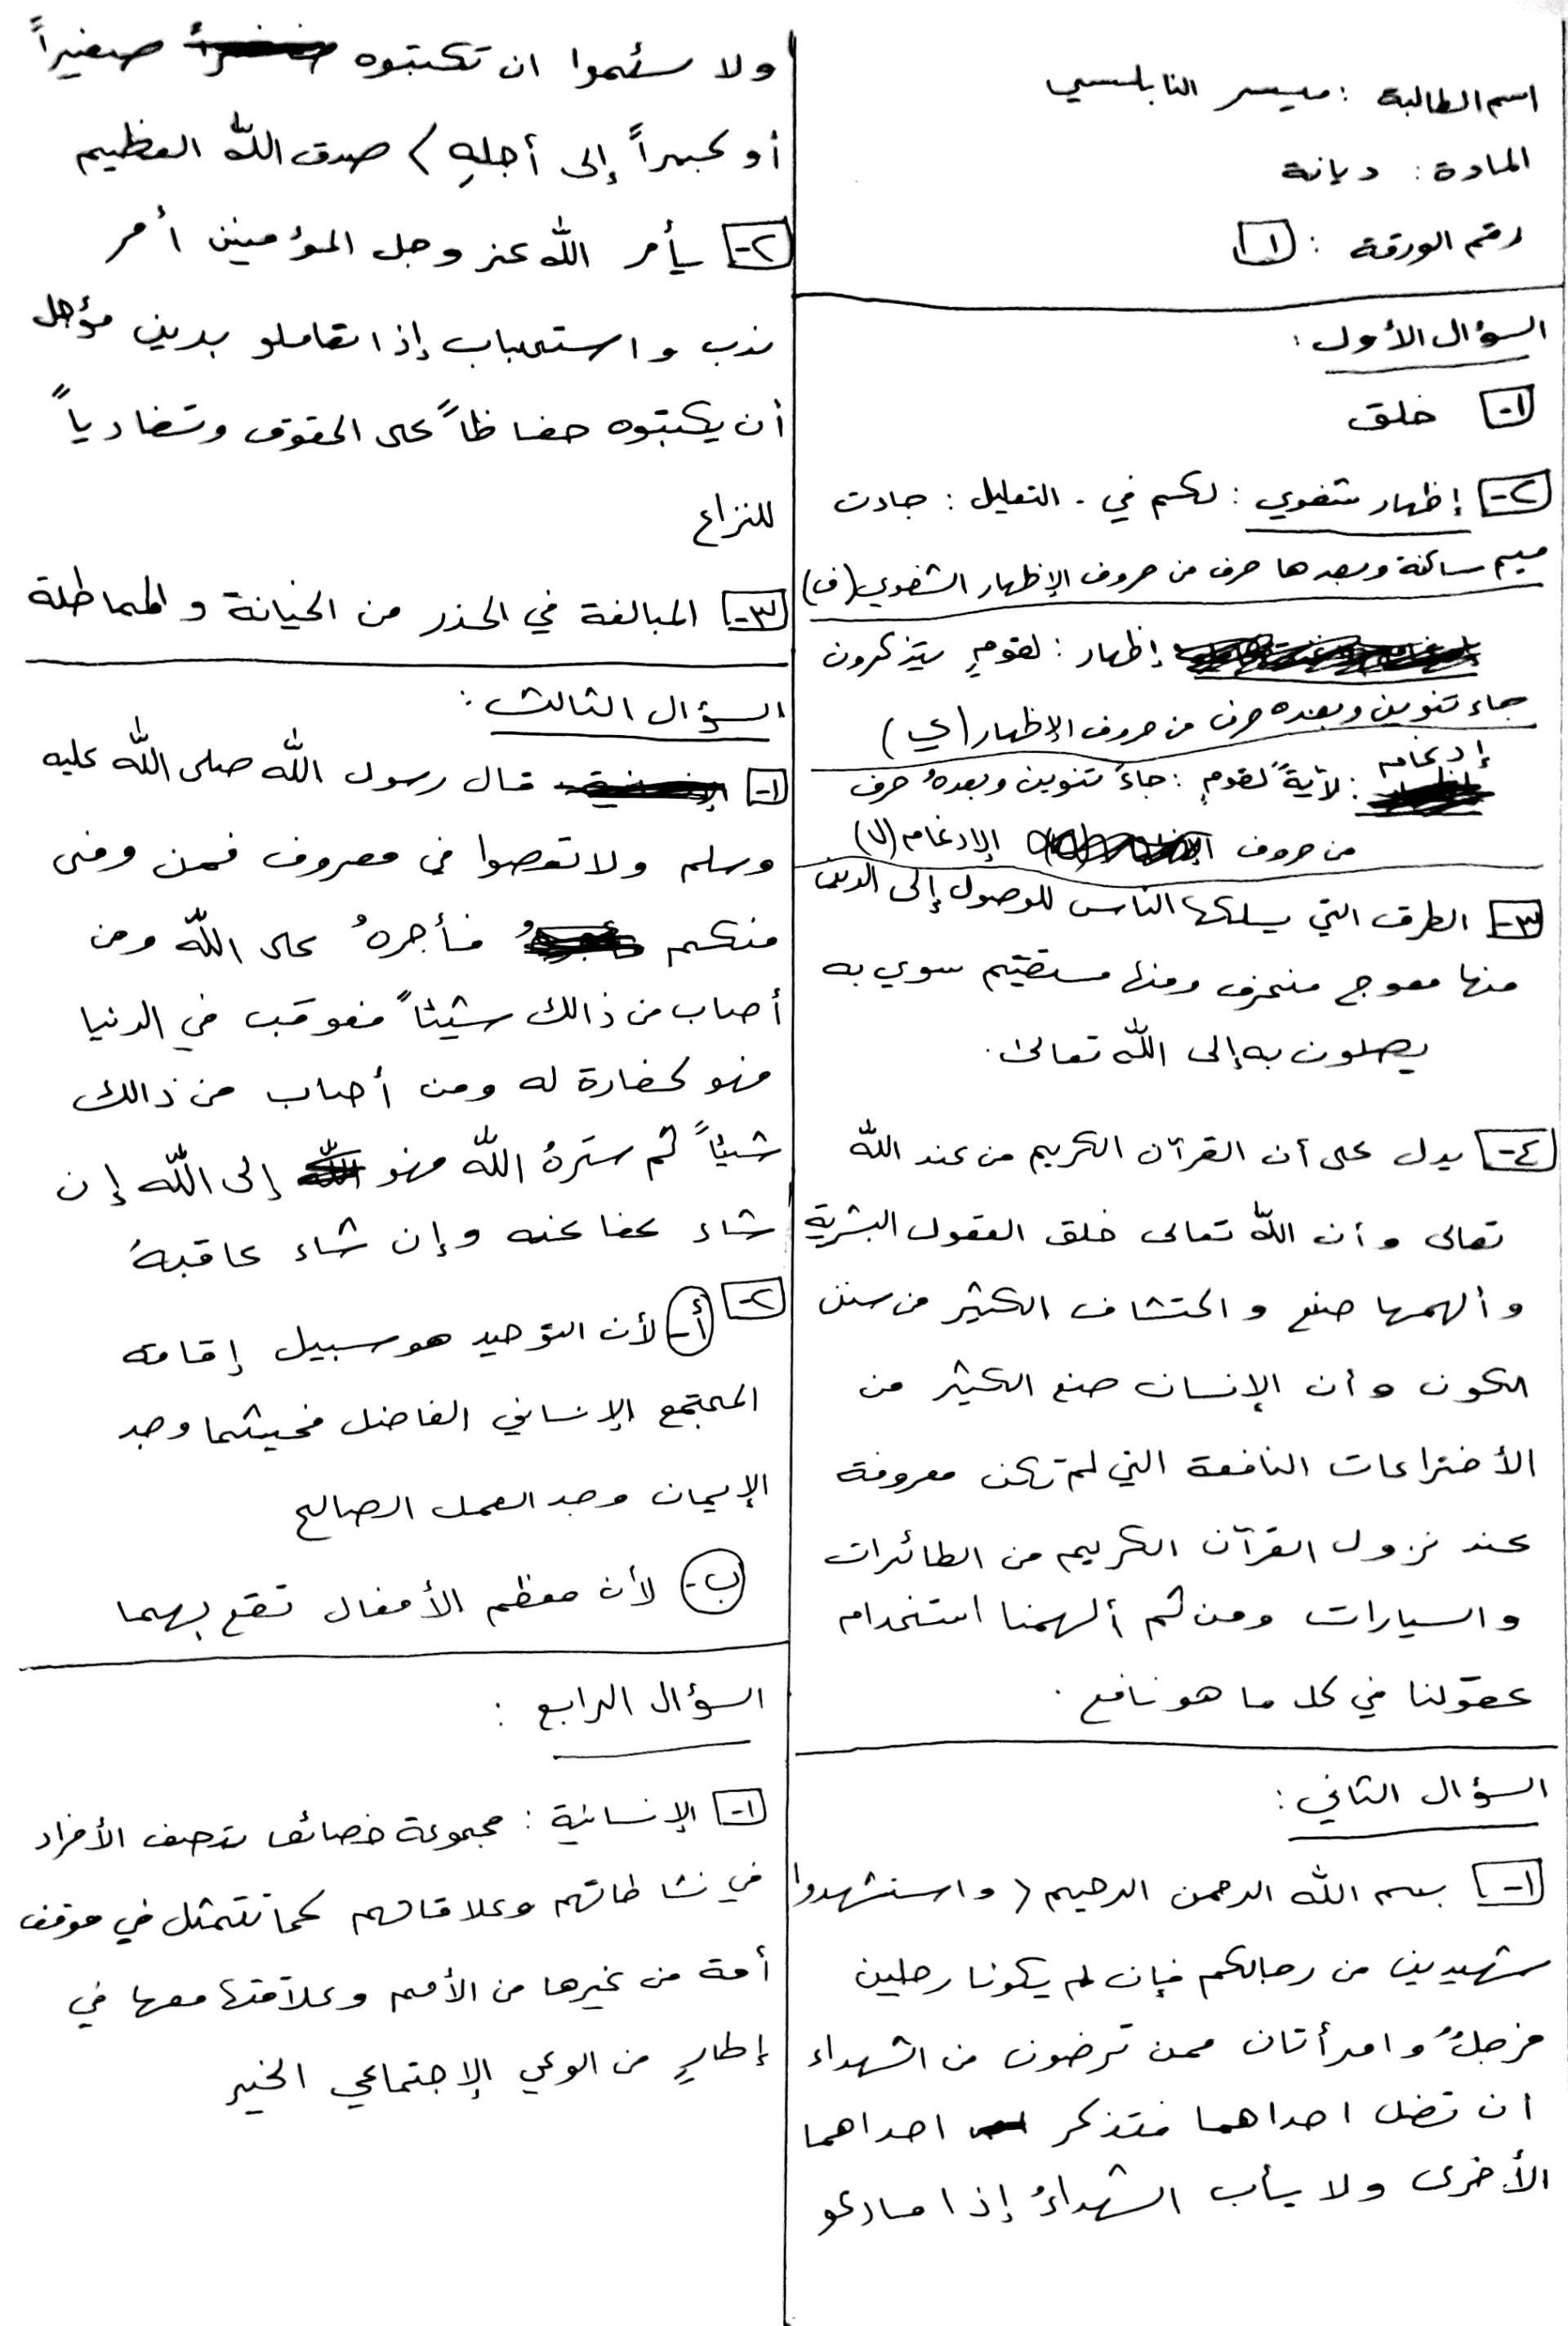 اسم الطالبة : ميسر النابلسي
المادة : ديانة
رقم الورقة : ١
السؤال الأول :
١- خلق
٢- إظهار شفوي : لكم في . التعليل : جاءت
ميم ساكنة وبعدها حرف من حروف الإظهار الشفوي (ف)
إظهار : لقومٍ يتذكرون
جاء تنوين وبعده حرف من حروف الإظهار (ي)
إدغام : لآيةً لقومٍ : جاءَ تنوين وبعدهُ حرف
من حروف الإدغام (ل)
٣- الطرق التي يسلكها الناس للوصول إلى الدين
منها معوج منحرف ومنها مستقيم سوي به
يصلون به إلى الله تعالى .
٤- يدل على أن القرآن الكريم من عند الله
تعالى وأن الله تعالى خلق العقول البشرية
وألهمها صنع واكتشاف الكثير من سنن
الكون وأن الإنسان صنع الكثير من
الأختراعات النافعة التي لم تكن معروفة
عند نزول القرآن الكريم من الطائرات
والسيارات ومن ثم ألهمنا استخدام
عقولنا في كل ما هو نافع .
السؤال الثاني :
١- بسم الله الرحمن الرحيم ( واستشهدوا
شهيدين من رجالكم فإن لم يكونا رجلين
فرجلٌ وامرأتان ممن ترضون من الشهداء
ان تضل احداهما فتذكر احداهما
الأخرى ولا يأب الشهداءُ إذا مادعو
ولا سئموا ان تكتبوه صغيراً
أو كبيراً إلى أجلهِ ) صدق الله العظيم
٢- يأمر الله عز وجل المؤمنين أمر
ندب واستحباب إذا تعاملو بدين مؤجل
أن يكتبوه حفاظاً على الحقوق وتفادياً
للنزاع
٣- المبالغة في الحذر من الخيانة والمماطلة
السؤال الثالث :
١- قال رسول الله صلى الله عليه
وسلم ولا تعصوا في معروف فمن وفى
منكم فأجرهُ على الله ومن
أصاب من ذالك شيئاً فعوقب في الدنيا
فهو كفارة له ومن أصاب من ذالك
شيئاً ثم سترهُ الله فهو إلى الله إن
شاء عفا عنه وإن شاء عاقبهُ
٢- أ- لأن التوحيد هو سبيل إقامة
المجتمع الإنساني الفاضل فحيثما وجد
الإيمان وجد العمل الصالح
ب- لأن معظم الأفعال تقع بهما
السؤال الرابع :
١- الإنسانية : مجموعة خصائص تصف الأفراد
في نشاطاتهم وعلاقاتهم كما تتمثل في موقف
أمة من غيرها من الأمم وعلاقتها معها في
إطارٍ من الوعي الإجتماعي الخير